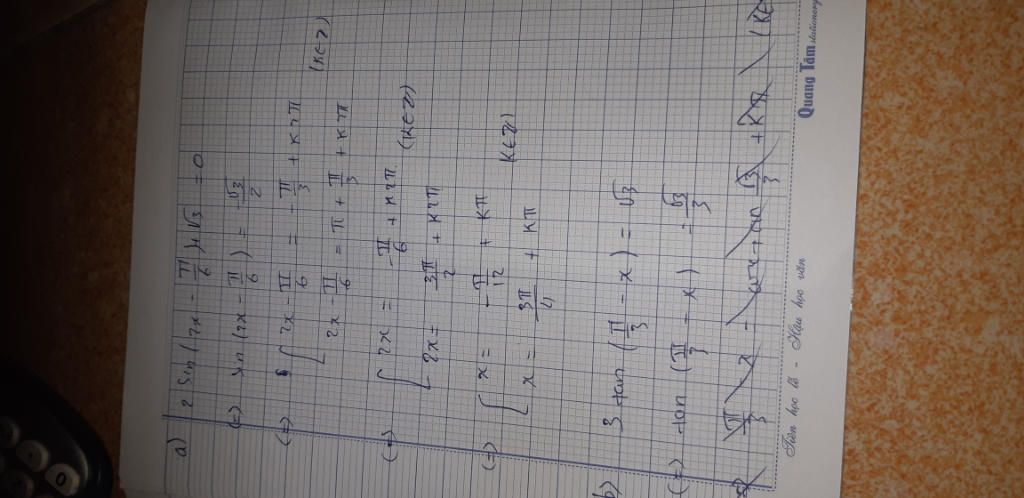 a) 2 sin (2x - π/6) + √3 = 0
(=) sin (2x - π/6) = -√3/2
(=) [ 2x - π/6 = -π/3 + k2π
2x - π/6 = π + π/3 + k2π (k∈Z)
(=) [ 2x = -π/6 + k2π
2x = 3π/2 + k2π (k∈Z)
(=) [ x = -π/12 + kπ
x = 3π/4 + kπ k∈Z
b) 3 tan (π/3 - x) = √3
(=) tan (π/3 - x) = √3/3
π/3 - x = √3/3 + kπ (k∈
Tiên học lễ - Hậu học văn
Quang Tâm stationery